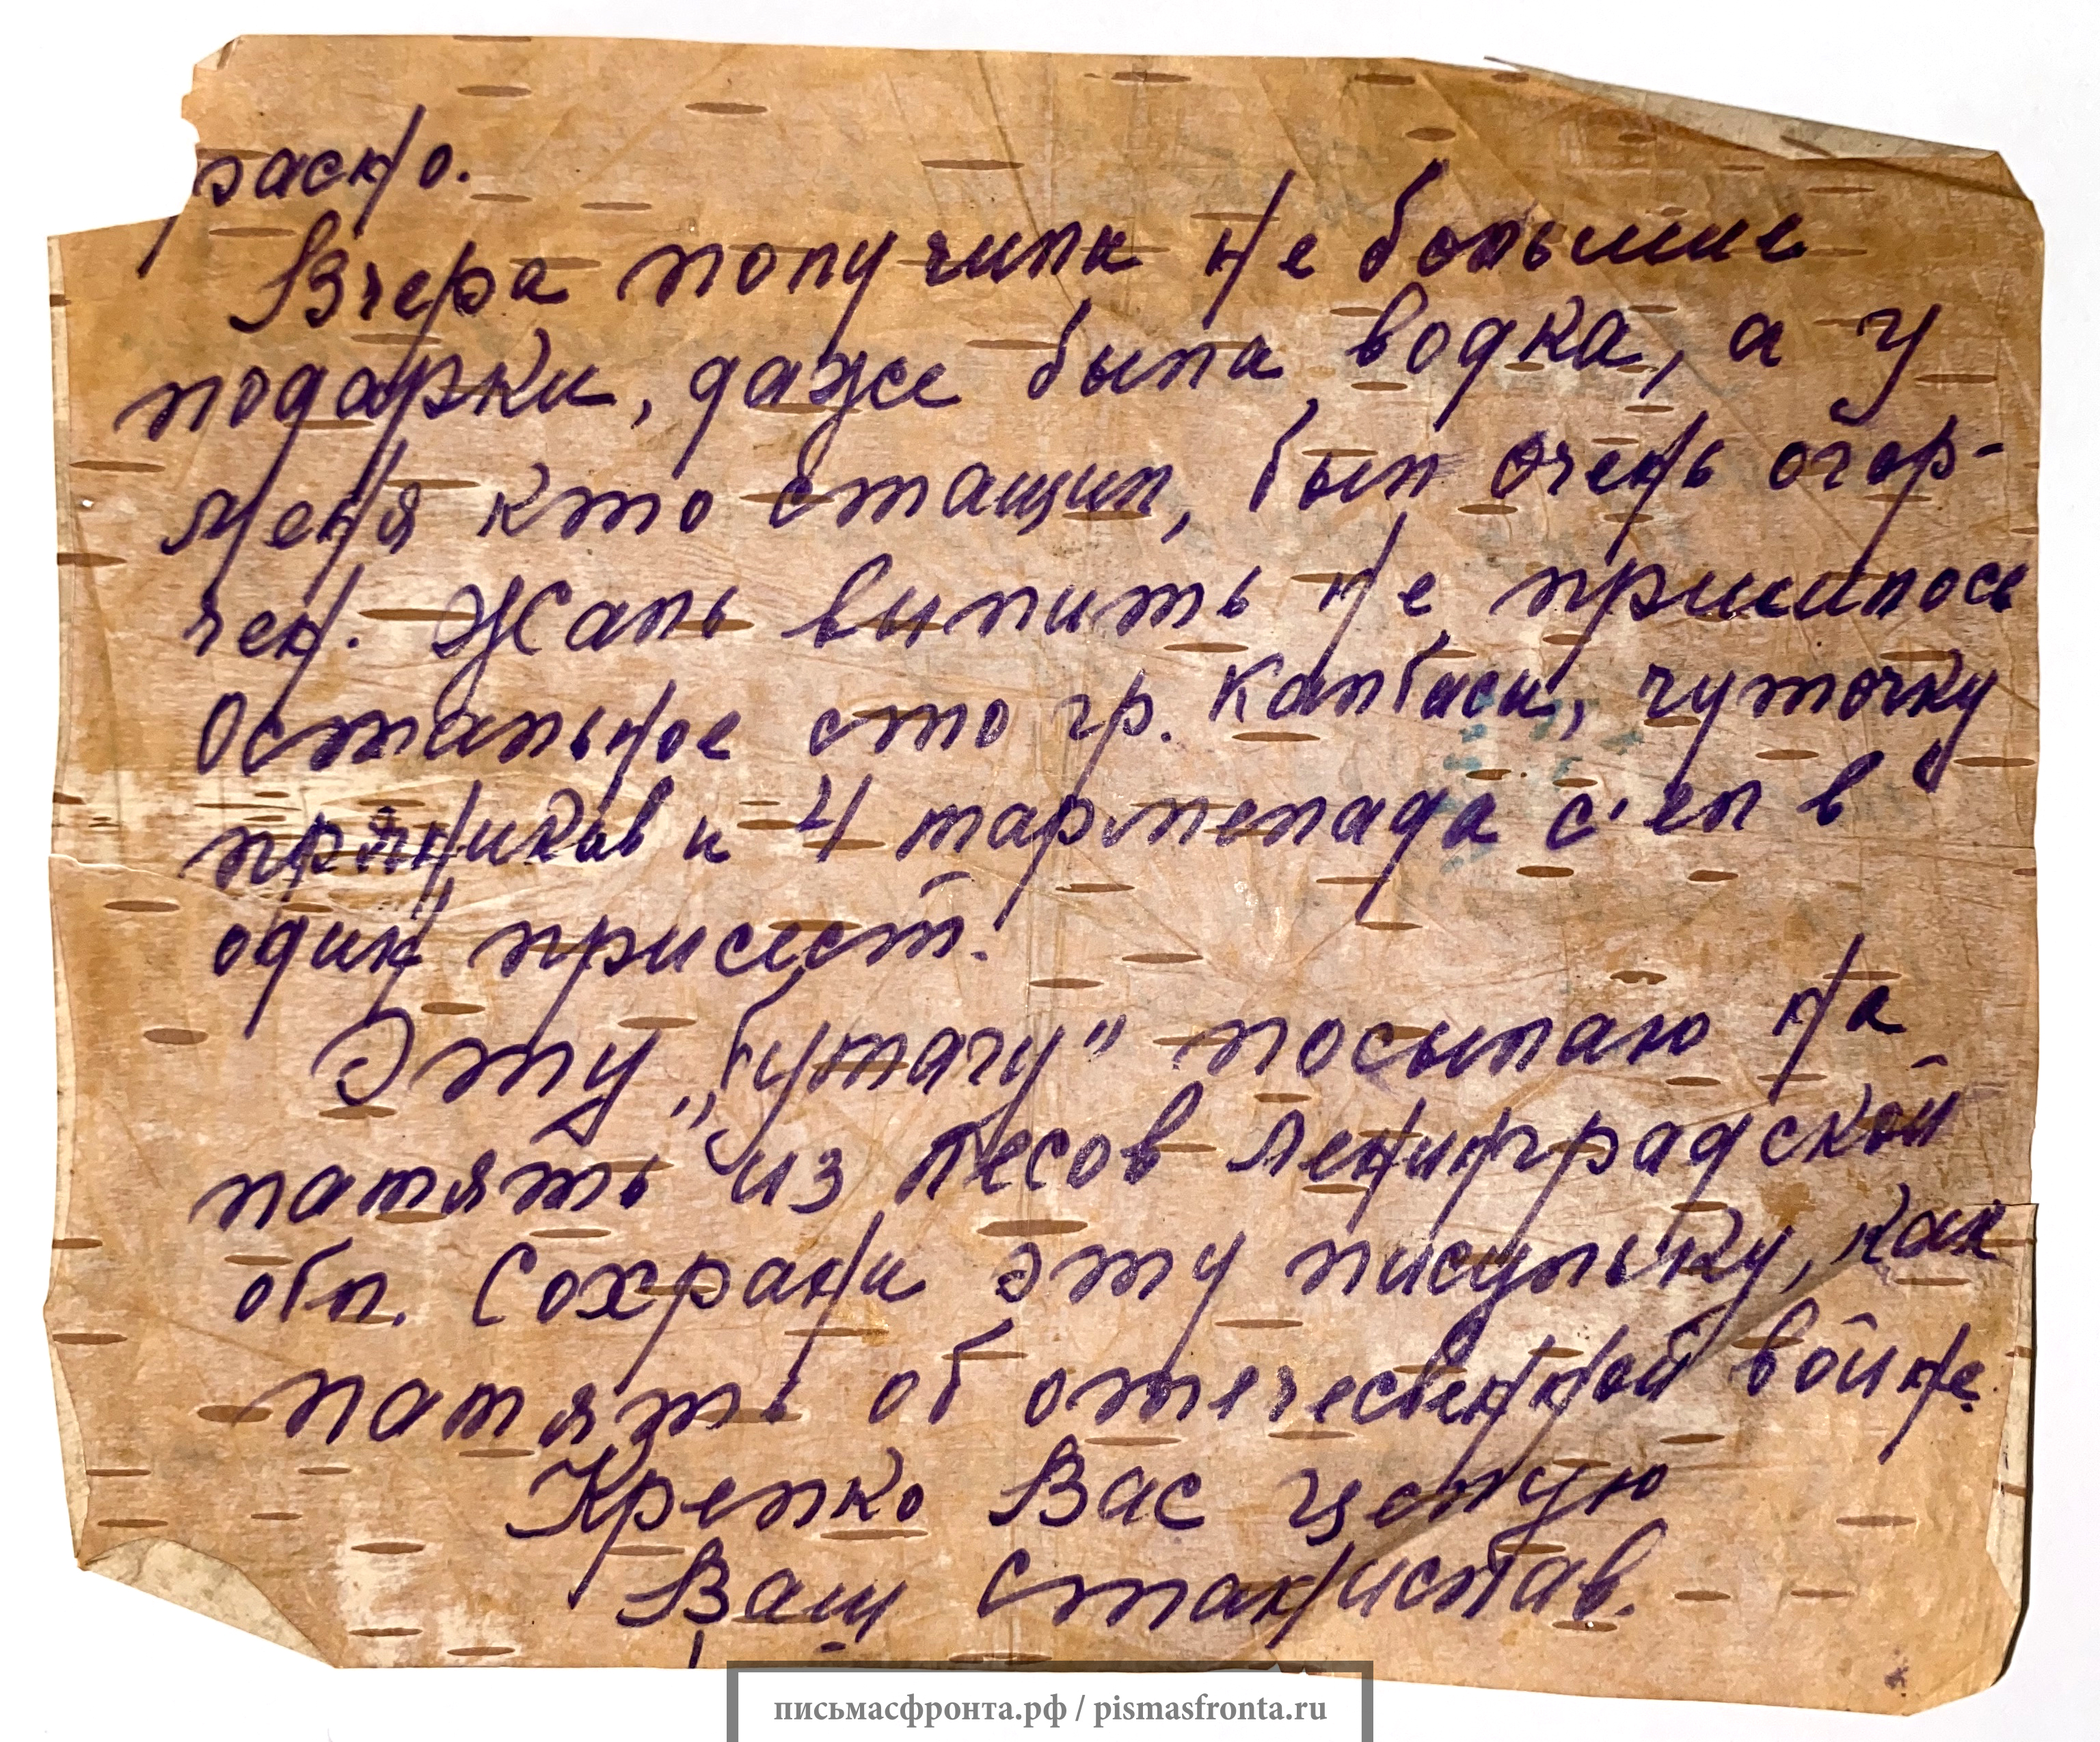 расно.
Вчера получили не большие
подарки, даже была водка, а у
меня кто стащил, был очень огор-
чен. Жаль выпить не пришлось
Остальное сто гр. калбаси, чуточку
пряников и 4 мармелада с'ел в
один присест.
Эту „бумагу" посылаю на
память из лесов Ленинградской
обл. Сохрани эту писульку, как
память об отечесвенной войне.
Крепко Вас целую
Ваш Станислав.
письмасфронта.рф / pismasfronta.ru